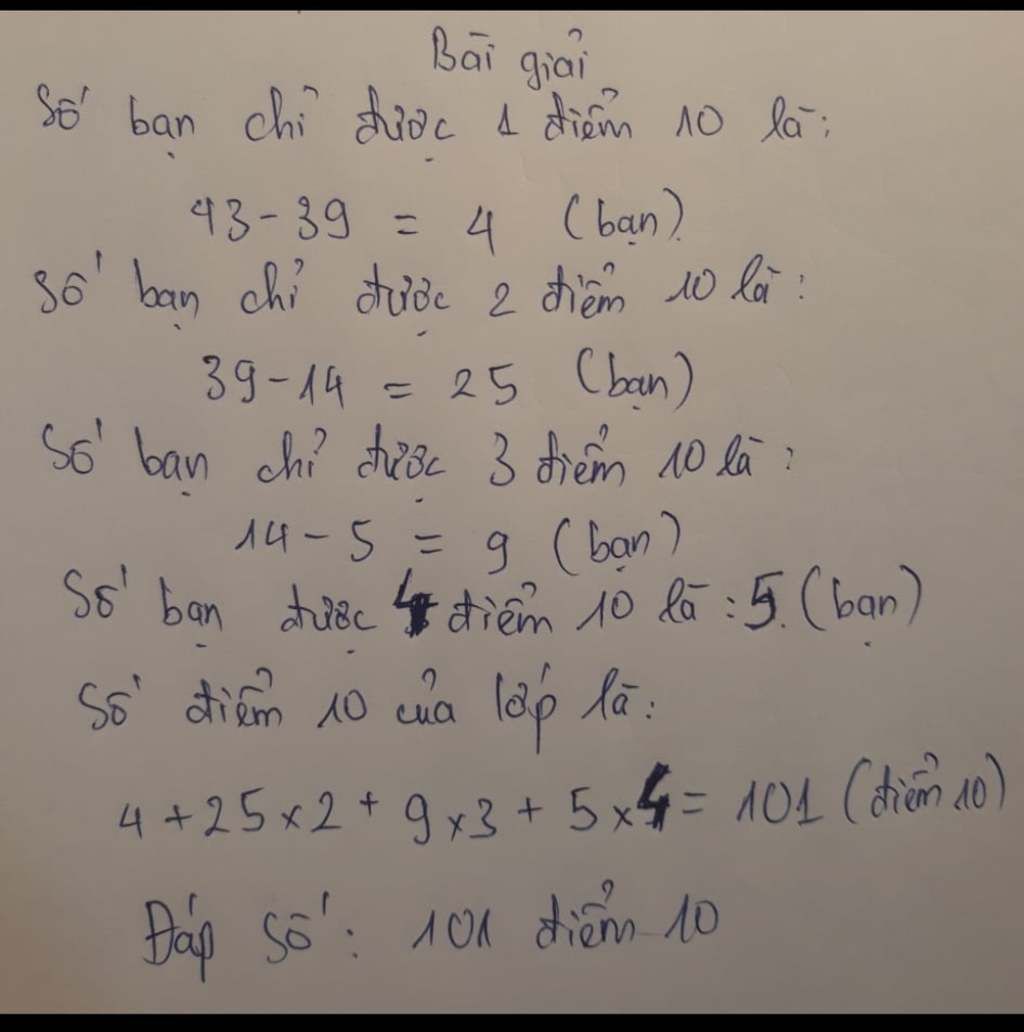 Bài giải
Số bạn chỉ được 1 điểm 10 là:
43 - 39 = 4 (bạn)
Số bạn chỉ được 2 điểm 10 là:
39 - 14 = 25 (bạn)
Số bạn chỉ được 3 điểm 10 là:
14 - 5 = 9 (bạn)
Số bạn được 4 điểm 10 là: 5 (bạn)
Số điểm 10 của lớp là:
4 + 25 x 2 + 9 x 3 + 5 x 4 = 101 (điểm 10)
Đáp số: 101 điểm 10